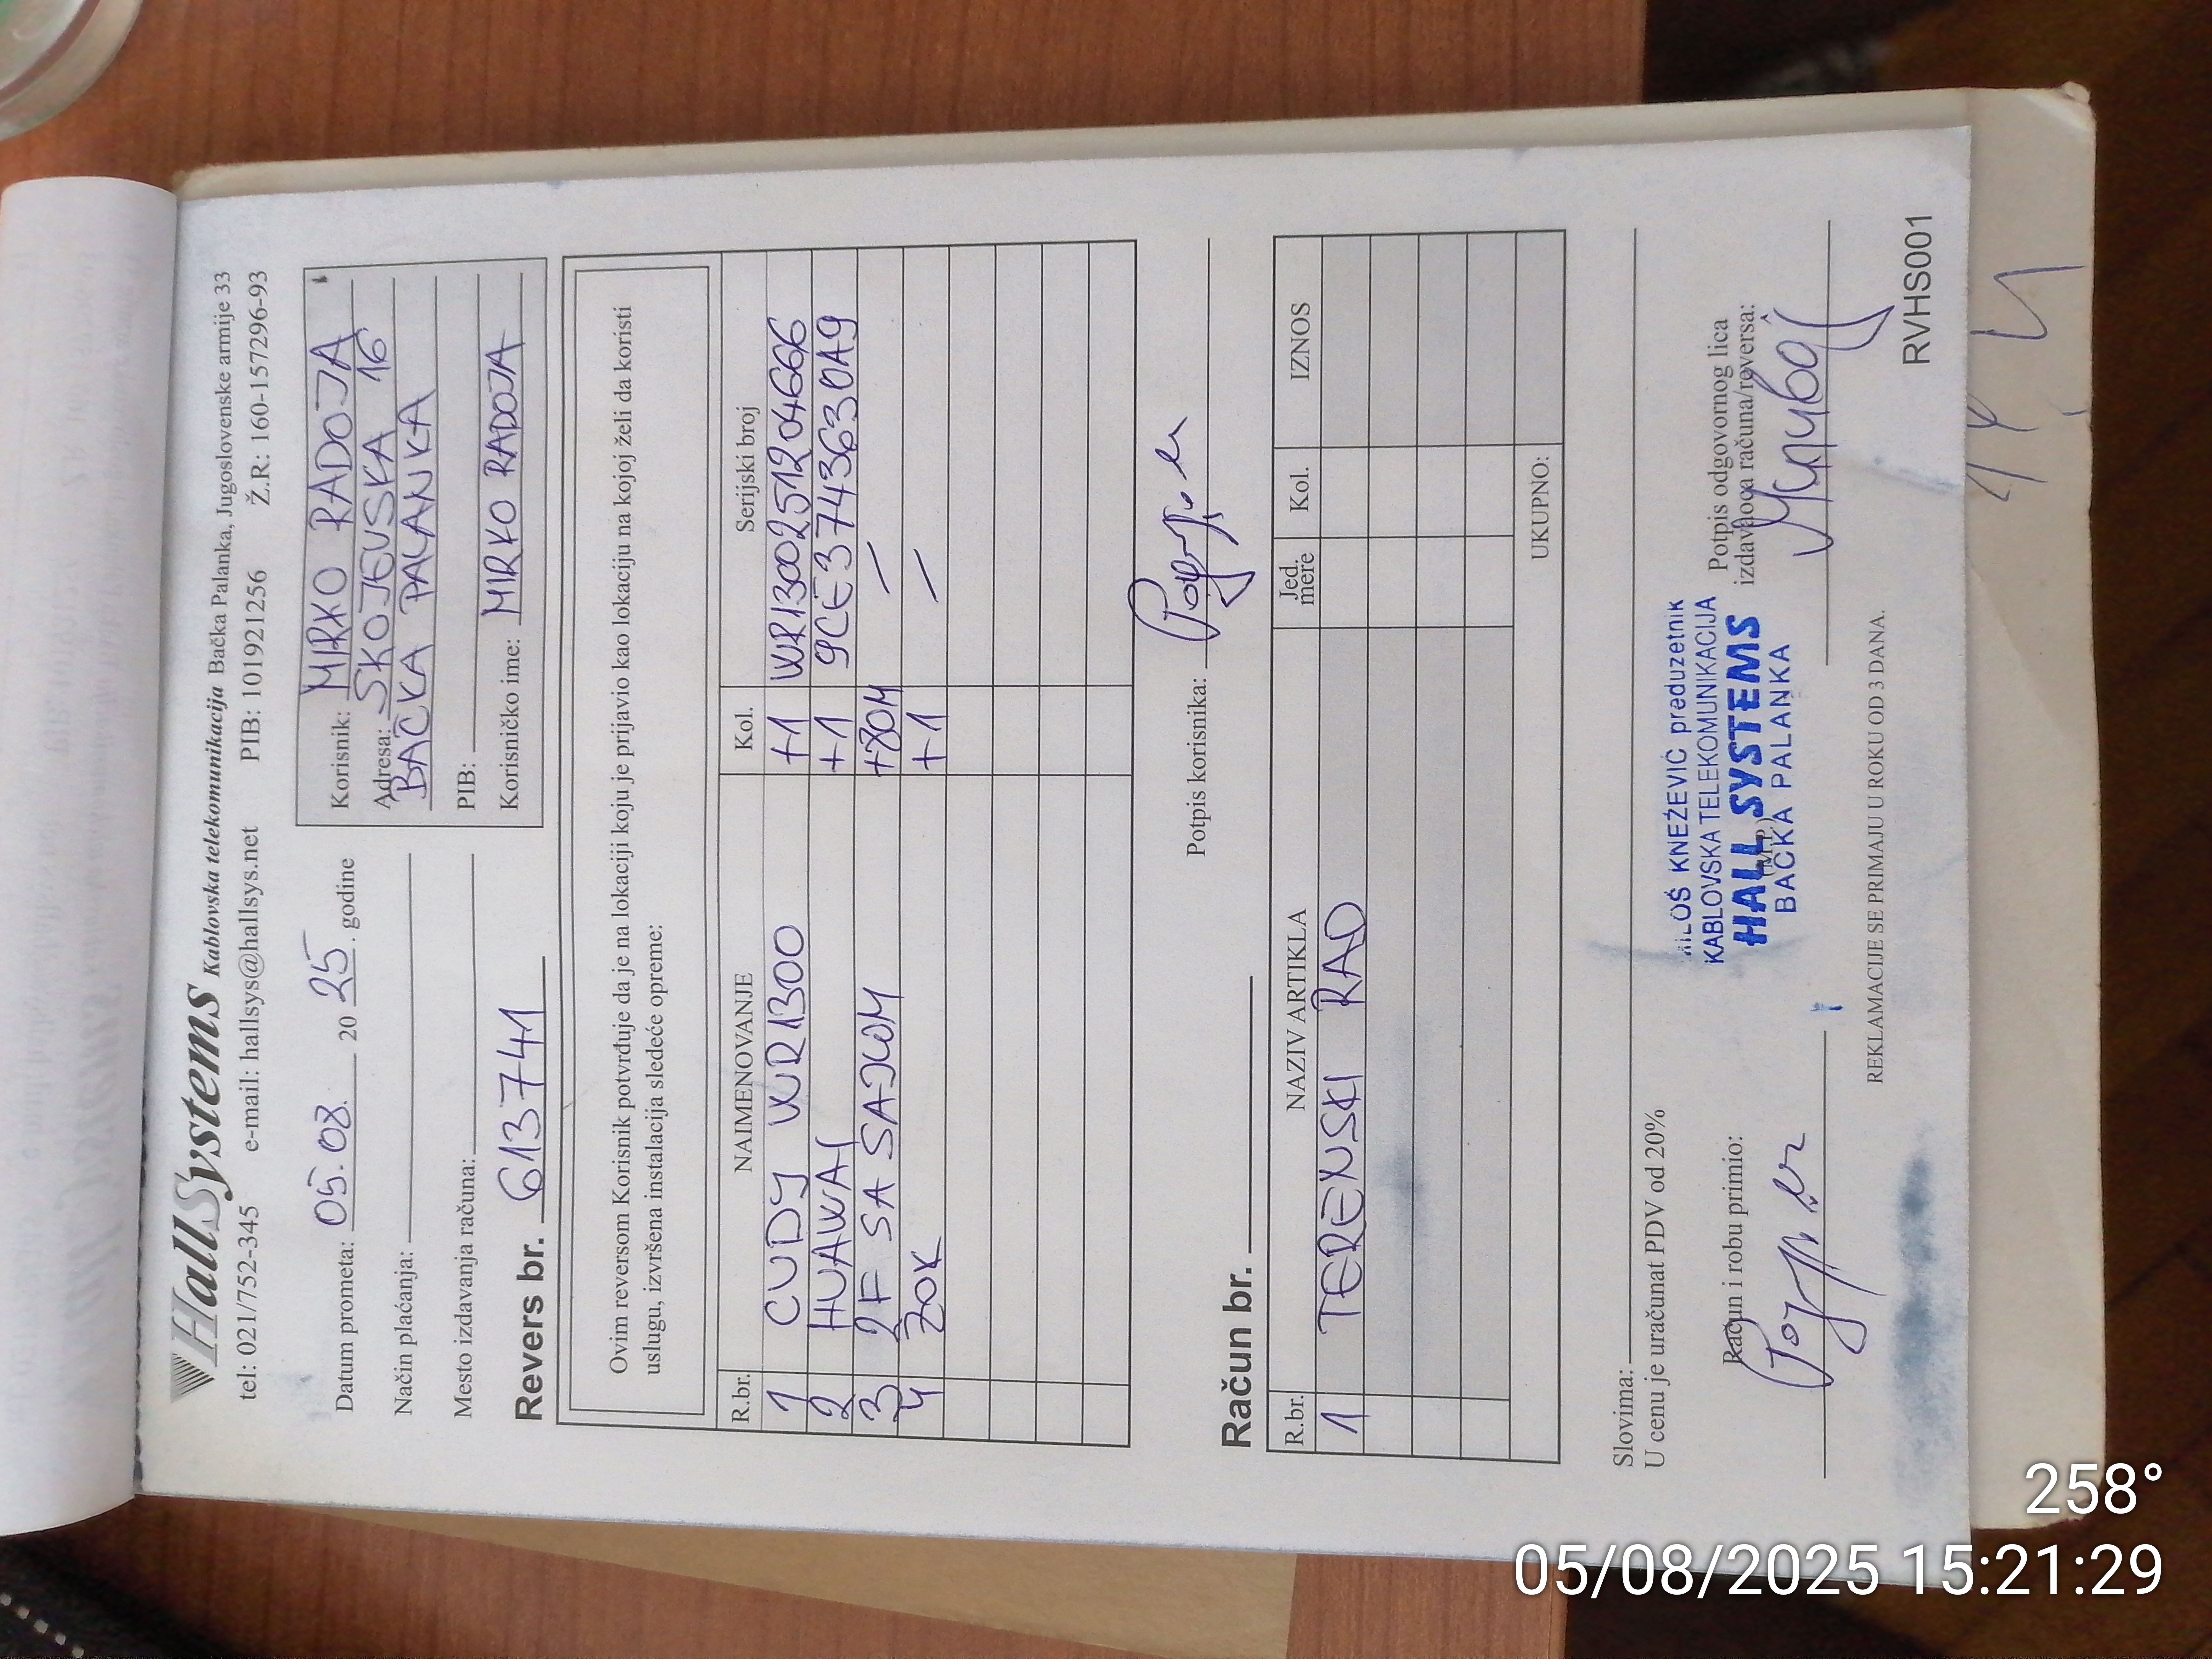 HallSystems Kablovska telekomunikacija Bačka Palanka, Jugoslovenske armije 33
tel: 021/752-345 e-mail: hallsys@hallsys.net PIB: 101921256 Ž.R.: 160-157296-93
Datum prometa: 05.08. 20 25. godine
Način plaćanja:
Mesto izdavanja računa:
Revers br. 613741
Korisnik: MIRKO RADOJA
Adresa: SKOJEVSKA 16
BAČKA PALANKA
PIB:
Korisničko ime: MIRKO RADOJA
Ovim reversom Korisnik potvrđuje da je na lokaciji koju je prijavio kao lokaciju na kojoj želi da koristi
uslugu, izvršena instalacija sledeće opreme:
R.br. NAIMENOVANJE Kol. Serijski broj
1 CUDY WR1300 +1 WR1300251204666
2 HUAWAI +1 9CE3743630A9
3 2F SA SAJLOM +80M /
4 ZOK +1 /
Potpis korisnika:
Račun br.
R.br. NAZIV ARTIKLA Jed. mere Kol. IZNOS
1 TERENSKI RAD
UKUPNO:
Slovima:
U cenu je uračunat PDV od 20%
Račun i robu primio:
MILOŠ KNEŽEVIĆ preduzetnik
KABLOVSKA TELEKOMUNIKACIJA
HALL SYSTEMS
BAČKA PALANKA
Potpis odgovornog lica
izdavaoca računa/reversa:
REKLAMACIJE SE PRIMAJU U ROKU OD 3 DANA.
RVHS001
258°
05/08/2025 15:21:29